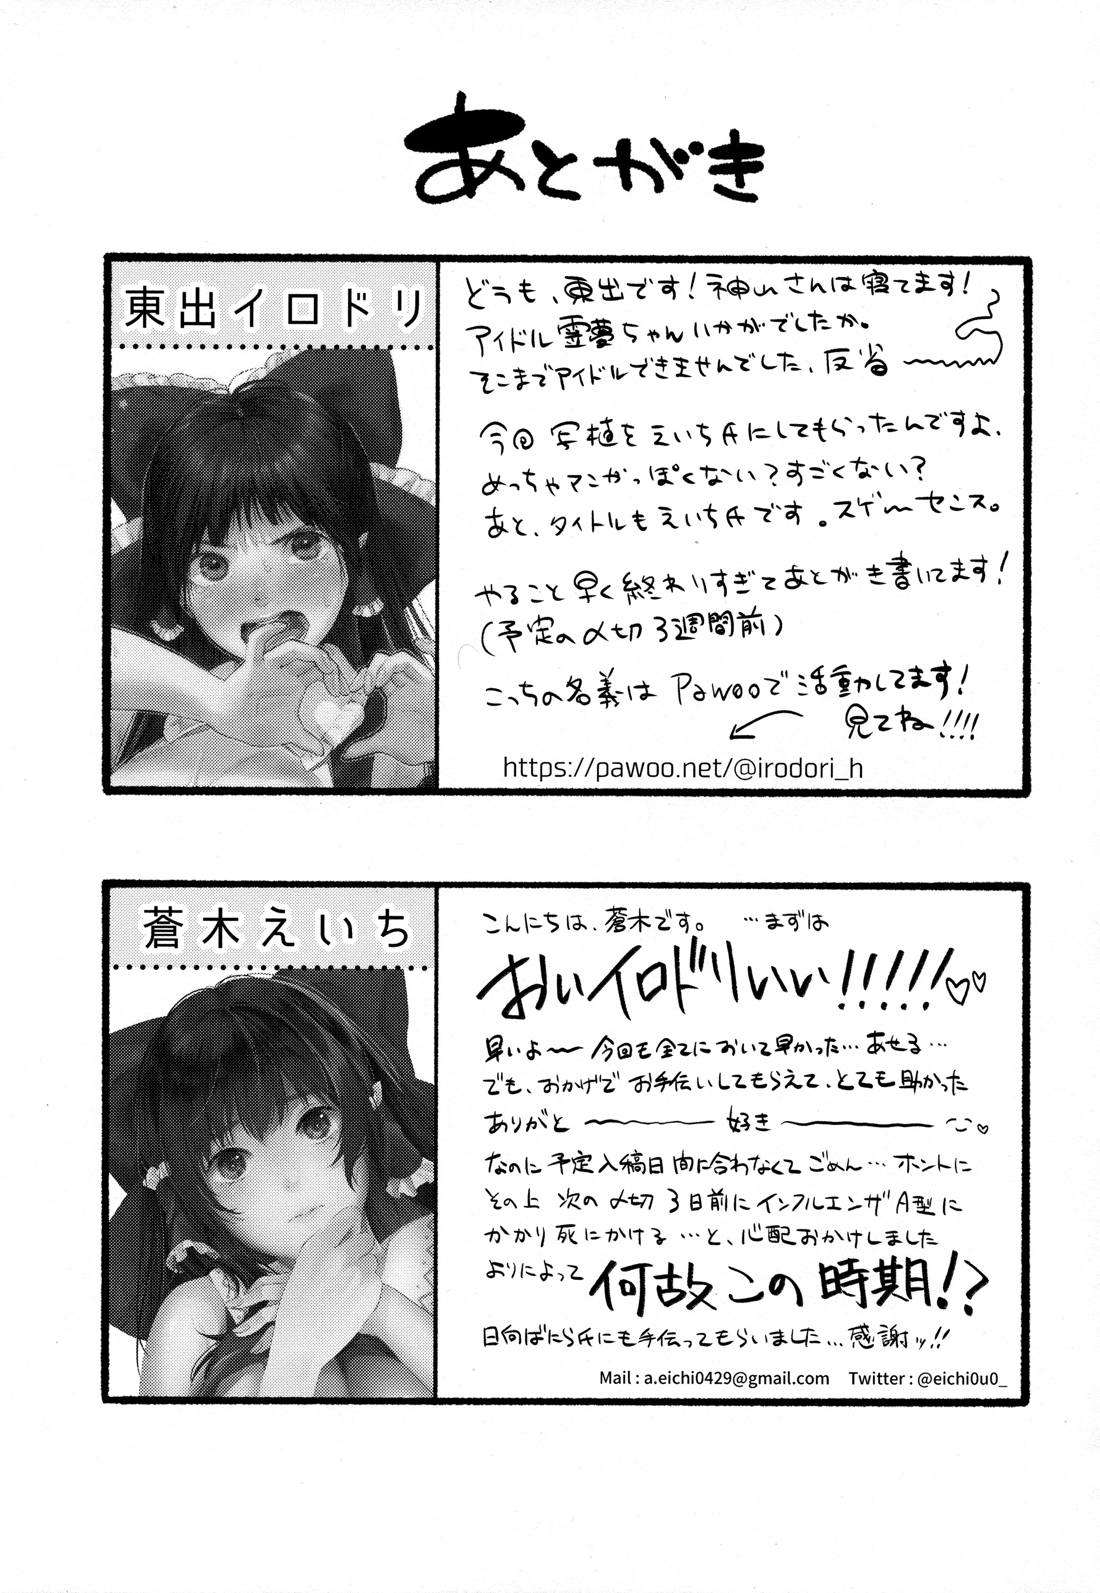 あとがき
東出イロドリ
どうも、東出です！神山さんは寝てます！
アイドル霊夢ちゃんいかがでしたか。
そこまでアイドルできませんでした、反省
今回写植をえいち氏にしてもらったんですよ、
めっちゃマンガっぽくない？すごくない？
あと、タイトルもえいち氏です。スゲーセンス。
やること早く終わりすぎてあとがき書いてます！
(予定の〆切3週間前)
こっちの名義はPawooで活動してます！
見てね!!!!
https://pawoo.net/@irodori_h
蒼木えいち
こんにちは、蒼木です。…まずは
おいイロドリいい!!!!!♡♡
早いよ〜今回も全てにおいて早かった…あせる…
でも、おかげでお手伝いしてもらえて、とても助かった
ありがと〜好き〜♡
なのに予定入稿日間に合わなくてごめん…ホントに
その上次の〆切3日前にインフルエンザA型に
かかり死にかける…と、心配おかけしました
よりによって何故この時期!?
日向ばにら氏にも手伝ってもらいました…感謝ッ!!
Mail : a.eichi0429@gmail.com Twitter : @eichi0u0_